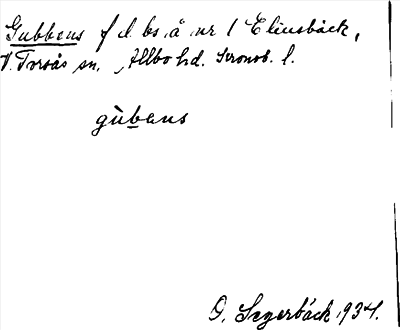 Gubbens f d. bs. å nr 1 Eliusbäck,
V. Torsås sn. Allbo hd. Kronob. l.
gùbens
O. Segerbäck 1934.